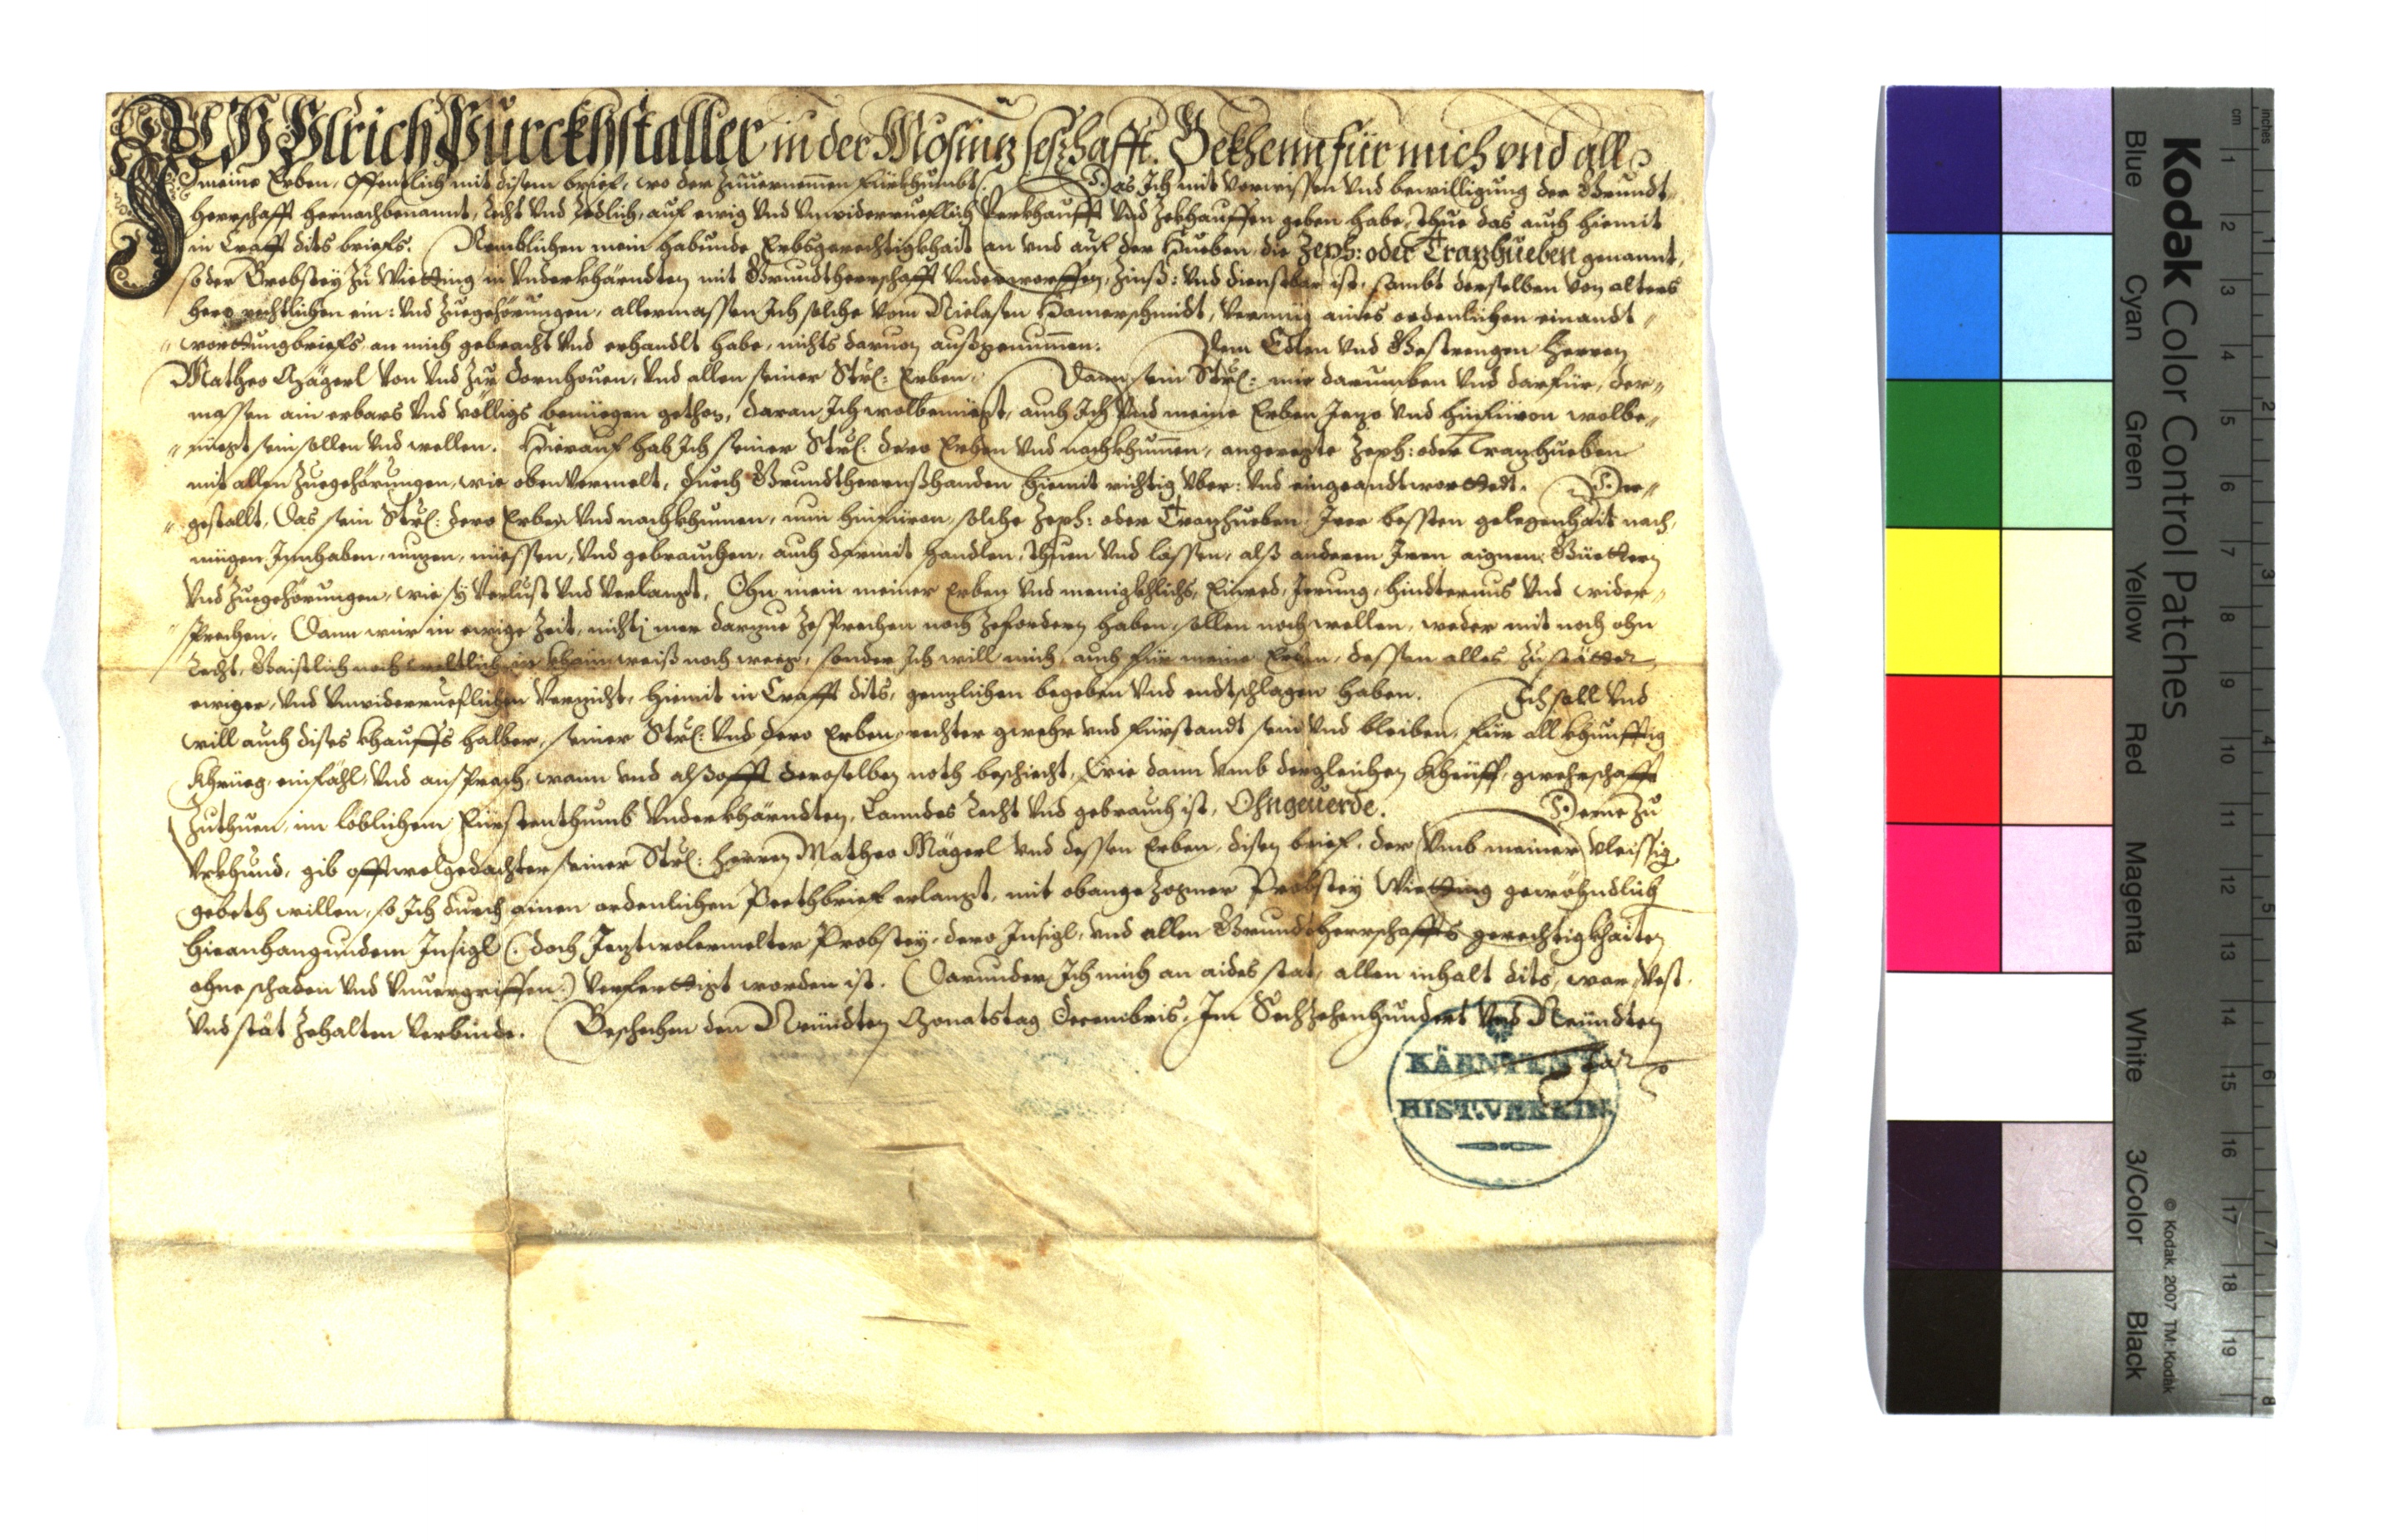 ICH Ulrich Purckhstaller in der Mosinz seszhafft. Bekhenn für mich vnd all
meine Erben, öffentlich mit disem brief, wo der zuuernemen fürkhumbt. Das Ich mit vorwissen vnd bewilligung der Grundt-
herrschafft hernachbenannt, Recht vnd Redlich, auf ewig vnd vnwiderrueflich verkhaufft vnd zekhauffen geben habe, Thue das auch hiemit
in Crafft dits briefs. Nemblichen mein habunde Erbsgerechtigkhait an vnd auf der Hueben, die Zeph: oder Cranzhueben genannt,
so der Brobstey zu Wietting in Vnderkhärndten mit Grundtherrschafft vnderworffen, Zinß: vnd dienstbar ist, sambt derselben von alters
hero rechtlichen ein: vnd Zuegehörungen, allermassen Ich solche vom Niclasen Hamerschmidt, vermüg aines ordenlichen einandt-
worttungbriefs an mich gebracht vnd erhandlt habe, nichts daruon außgenummen. Dem Edlen vnd Gestrengen Herren
Matheo Mägerl von vnd zu Dornhouen, vnd allen seiner Strl: Erben. Dann sein Strl: mir darumben vnd darfür, der-
massen ain erbars vnd völligs benüegen gethon, daran Ich wolbenüegt, auch Ich vnd meine Erben Jezo vnd hinfüron wolbe-
nüegt sein sollen vnd wellen. Hierauf hab Ich seiner Strl: dero Erben vnd nachkhumen, angeregte Zeph: oder Cranzhueben
mit allen Zuegehörungen, wie oben vermelt, durch Grundtherrnßhanden hiemit richtig vber: vnd eingeandtworttet. Der-
gestallt, Das sein Strl: dero Erben vnd nachkhumen, nun hinfüron, solche Zeph: oder Cranzhueben Irer bessten gelegenhait nach,
mügen Innhaben, nuzen, niessen, vnd gebrauchen, auch darmit handlen, Thuen vnd lassen, alß anderen Iren aignen Güettern
vnd Zuegehörungen, wie sy verlusst vnd verlangt, Ohn mein meiner Erben vnd menigkhlichs, Einred, Irrung, hindternus vnd wider-
sprechen. Dann wür in ewige Zeit, nichts mer darzue Zesprechen noch Zefordern haben, sollen noch wellen, weder mit noch ohn
Recht, Gaistlich noch weltlich in khain weiß noch weeg, sonder Ich will mich auch für meine Erben, dessen alles zu stätter
ewiger, vnd vnwiderrueflichen verzicht, hiemit in Crafft dits, genzlichen begeben vnd endtschlagen haben. Ich soll vnd
will auch dises khauffs halber, seiner Strl: vnd dero Erben, rechter gwehr vnd fürstandt sein vnd bleiben, für all khünfftig
khrieg, einfähl, vnd ansprach, wann vnd alß offt deroselben noth beschiecht, Wie dann vmb dergleichen kheüff, gwehrschafft
Zuthuen, im löblichem Fürstenthumb Vnderkhärndten, Lanndes Recht vnd gebrauch ist, Ohngeuerde. Derne zu
Vrkhund, gib offtwolgedachter seiner Strl: Herren Matheo Mägerl vnd dessen Erben, disen brief, der vmb meiner vleissig
gebeth willen, so Ich durch ainen ordenlichen Peethbrief erlangt, mit obangezogner Probstey Wietting gewöhndlich
hieanhangundem Insigl (: doch Jeztwolermelter Probstey, dero Insigl, vnd allen Grundtherrschaffts gerechtigkhaiten
ohne schaden vnd vnuergriffen:) verferttigt worden ist. Darunder Ich mich an aides stat, allen inhalt dits, war vest
vnd stät Zehalten verbinde. Beschechen den Neündten Monatstag Decembris, Im Sechzehenhundert vnd Neündten
Jar
KÄRNTEN
HIST. VEREIN
Kodak Color Control Patches
Blue Cyan Green Yellow Red Magenta White 3/Color Black
© Kodak, 2007 TM: Kodak
cm 1 2 3 4 5 6 7 8 9 10 11 12 13 14 15 16 17 18 19
inches 1 2 3 4 5 6 7 8